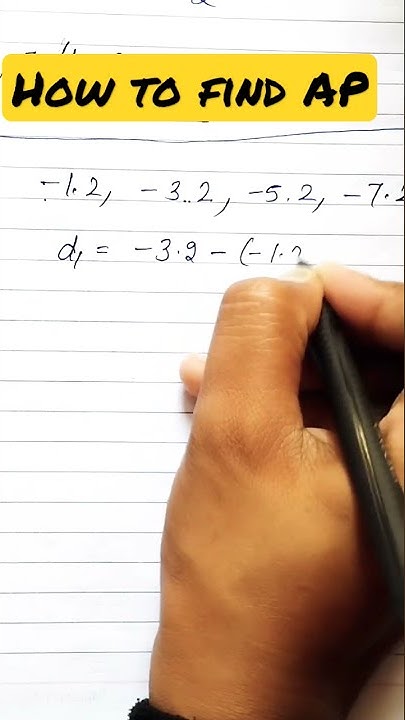 How to find AP
-1.2, -3.2, -5.2, -7.2
d₁ = -3.2 - (-1.2